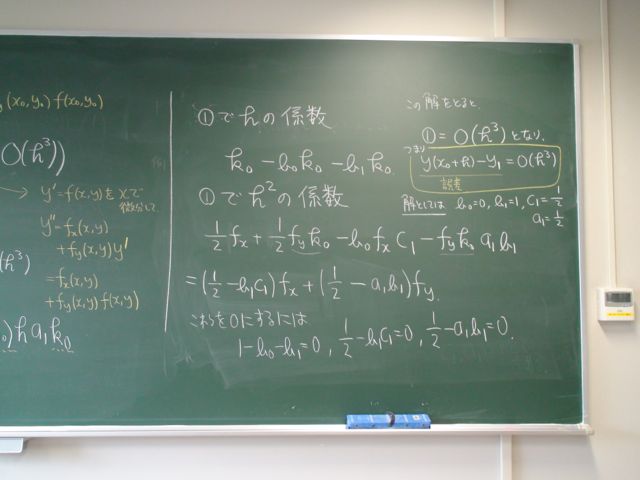 (x₀,y₀) f(x₀,y₀)
O(h³))
→ y'=f(x,y)をxで
微分して
y''=fx(x,y)
+fy(x,y)y'
=fx(x,y)
+fy(x,y)f(x,y)
h³)
)h a₁k₀
①でhの係数
k₀-b₀k₀-b₁k₀
①でh²の係数
1/2 fx+1/2 fyk₀-b₀fx c₁-fyk₀ a₁b₁
=(1/2-b₁c₁)fx+(1/2-a₁b₁)fy
これらを0にするには
1-b₀-b₁=0, 1/2-b₁c₁=0, 1/2-a₁b₁=0.
この解をとると、
①=O(h³)となり、
つまり
y(x₀+h)-y₁=O(h³)
誤差
解としては b₀=0, b₁=1, c₁=1/2
a₁=1/2